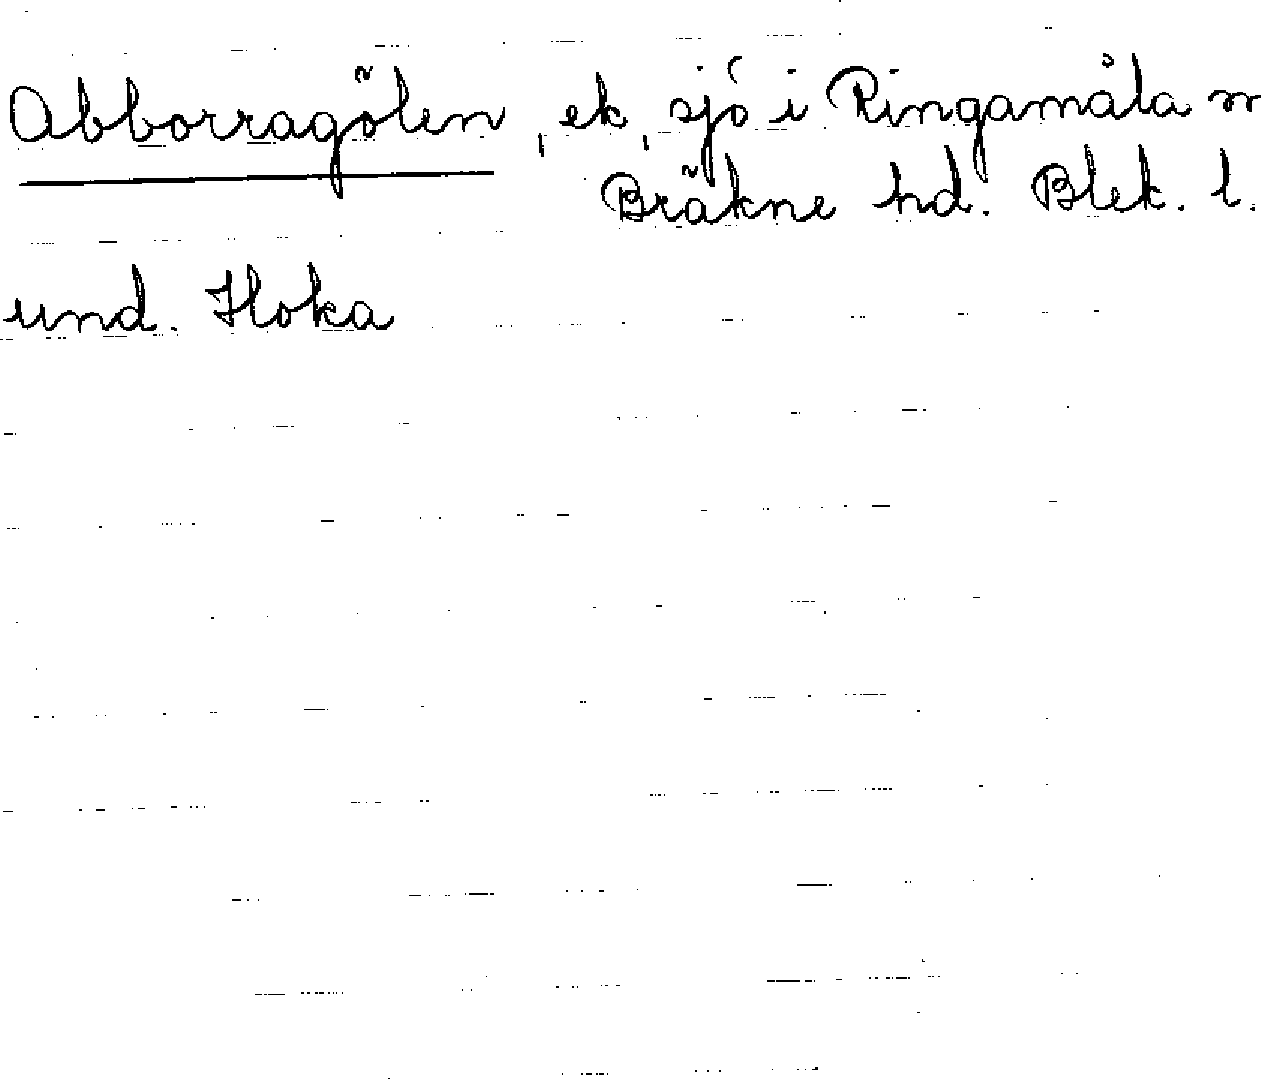 Abborragölen, ek, sjö i Ringamåla sn
Bräkne hd. Blek. l.
und. Hoka